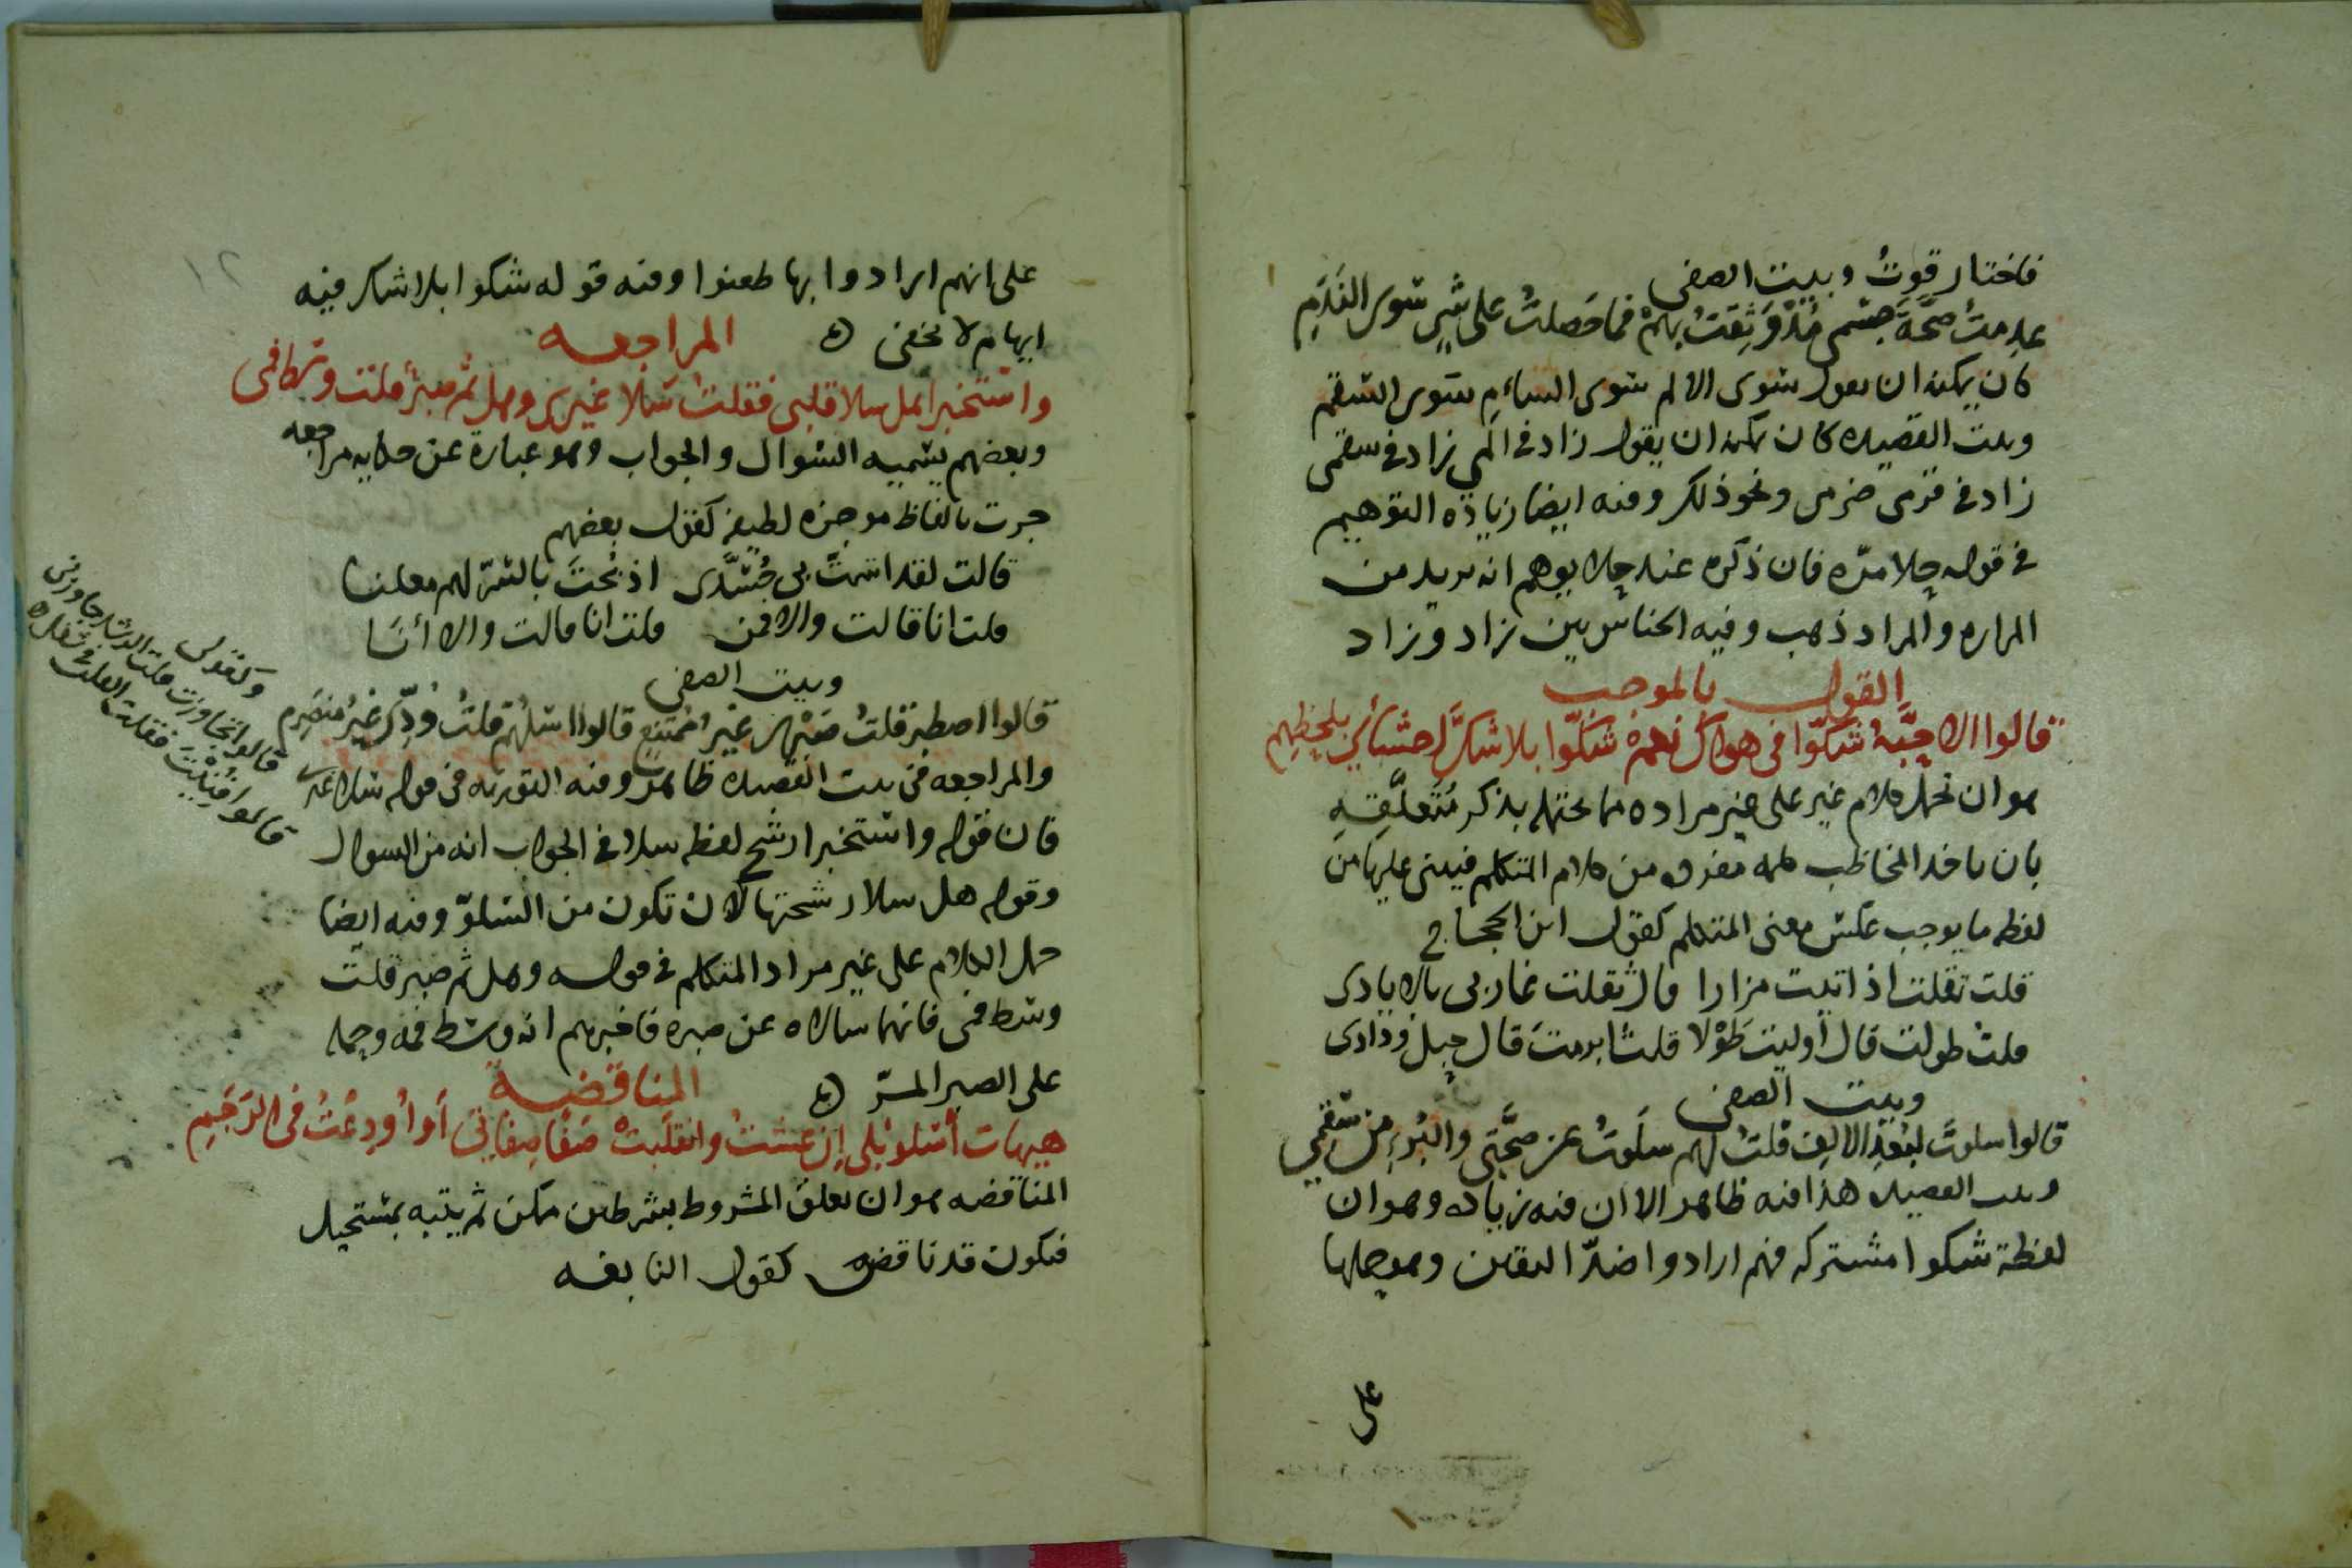 فاختار قوتُ وبيت الصفى
عدمتُ صحَّةَ جسمى مُذْ وَثِقتُ بهمْ فما حَصلتُ على شىٍ سوى النَدَمِ
كان يمكنه ان يقول سوى الالم سوى السأم سوى السقم
وبيت القصيده كان يمكنه ان يقول زاد فى المى زاد فى سقمى
زاد فى ضرمى ونحو ذلك وفيه ايضا زيادة التوهيم
فى قوله حلا مرّه فان ذكره عند حلا يوهم انه يريد من
المراره والمراد ذهب وفيه الجناس بين زاد وزاد
القول بالموجب
قالوا الاحبَّةُ شكّوا فى هواك نعمْ شكّوا بلا شكَّ احشائى بلحظِهِم
هو ان تحمل كلام غير على غير مراده مما يحتمله بذكر مُتَعلَّقِهِ
بان ياخذ المخاطب كلمه مفرده من كلام المتكلم فيبنى عليها من
لفظه ما يوجب عكس معنى المتكلم كقول ابن الحجاج
قلت ثقلت اذ اتيت مزارا قال ثقلت غاربى بالايادى
قلت طولت قال أوليت طَوْلا قلت ابرمتَ قال حبل ودادى
وبيت الصفى
قالوا سلوتَ لبُعْدِ الالِف قلتُ لهم سلَوتُ عن صحَّتى والبُرءِ من سَقَمى
وبيت القصيده هذا فيه ظاهر الا ان فيه زياده وهو ان
لفظة شكوا مشتركه فهم ارادوا ضدّ اليقين وهو حملها
على
١٢
على انهم ارادوا بها طعنوا وفيه قوله شكوا بلا شك فيه
ايهام لا يخفى
المراجعه
واستخبرا هل سلا قلبى فقلتُ سَلا غيرى وهل ثم صبرٌ قلتُ وسط فمى
وبعضهم يسميه السوال والجواب وهو عبارة عن حكايه مراجعه
جرت بالفاظ موجزه لطيفه كقول بعضهم
قالت لقد اشمتَّ بى حُسَّدى اذ بُحتَ بالسّرّ لهم معلنا
قلت انا قالت والا فمن قلت انا قالت والا أنَا
وبيت الصفى
قالوا اصطبر قلتُ صَبْرى غيْرُ مُمْتَنِعٍ قالوا اسلُهُم قلتُ وُدِّى غيْرُ منصَرِم
والمراجعه فى بيت القصيده ظاهره وفيه التوريه فى قوله سلا غيرى
فان قوله واستخبرا رشح لفظه سلا فى الجواب انه من السوال
وقوله هل سلا رشحتها لان تكون من السلوّ وفيه ايضا
حمل الكلام على غير مراد المتكلم فى قوله وهل ثم صبر قلت
وسط فمى فانهما سالاه عن صبره فاخبرهم انه وسط فمه وحمله
على الصبر المرّ
المناقضة
هيهات أسْلو بلى إن عشتُ وانقلبتْ صَفا صفاتى أو أُودِعْتُ فى الرَجَمِ
المناقضه هو ان يعلق المشروط بشرطين ممكن ثم يتبه بمستحيل
فيكون قد ناقضه كقول النابغه
وكقولى
قالوا تجاوزت قلت الرشد جاوزنى
قالوا فُتِنْتَ فقلت القلب فى شغله